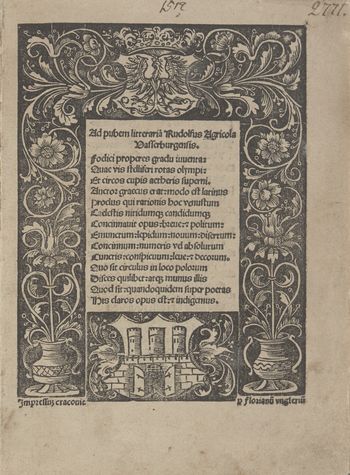 1512
2771.
Ad pubem litterariã Rudolfus Agricola
Vasserburgensis.
Fodici properes gradu iuuenta:
Quae vis stelliferi rotas olympi:
Et circos cupis aetheris superni.
Auctor graecus erat: modo est latinus
Proclus qui rationis hoc venustum
Caelestis nitidumque candidumque
Concinnauit opus: breue: et politum:
Emunctum: lepidum: nouum: disertum:
Concinnum: numeris vel absolutum
Cunctis: conspicuum: leue: et decorum.
Quo sit circulus in loco polorum
Disces quilibet: atque munus illis
Quod sit: quandoquidem super poetas
His claros opus est: et indigenus.
Impressum cracouie
p florianũ vnglerium